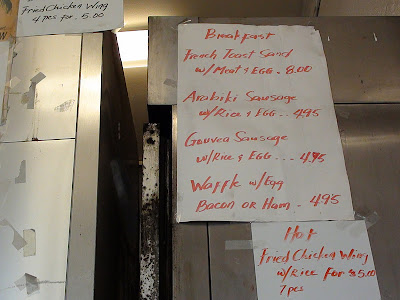 Fried Chicken Wing
4 pcs for. 5.00
Breakfast
French Toast Sand
w/Meat & EGG - 8.00
Arabiki Sausage
w/Rice & EGG .. 4.95
Gouvea Sausage
w/Rice & EGG ... 4.95
Waffle w/Egg
Bacon or Ham - 4.95
Hot
Fried Chicken Wing
w/Rice for $5.00
7 pcs